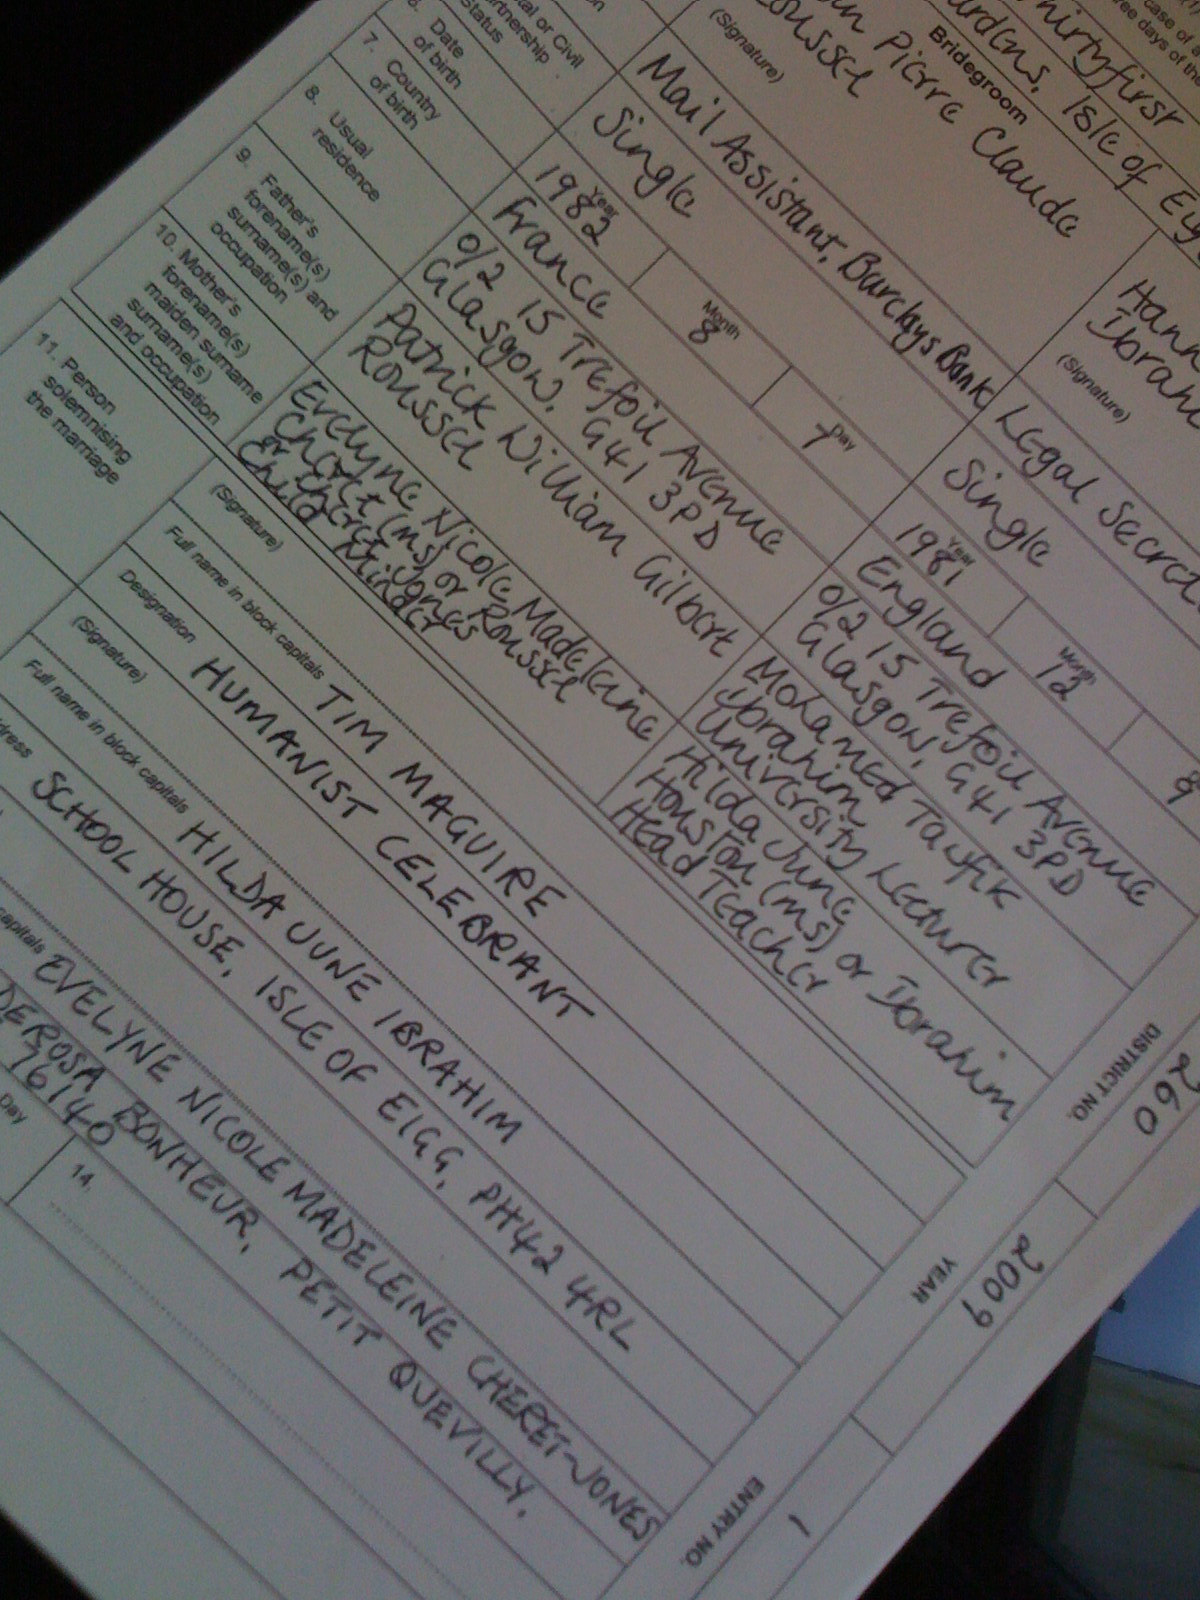 case of
ree days of the
Thirtyfirst
Isle of
Bridegroom
Pierre Claude
(Signature)
(Signature)
Mail Assistant, Barclays Bank
Legal
or Civil
Status
Single
Single
Date
of birth
Year
1982
Month
8
Day
7
Year
1981
Month
12
7. Country
of birth
France
England
8. Usual
residence
0/2 15 Trefoil Avenue
Glasgow, G41 3PD
0/2 15 Trefoil Avenue
Glasgow, G41 3PD
9. Father's
forename(s)
surname(s) and
occupation
Patrick William Gilbert
Roussel
Mohamed Taufik
Ibrahim
University Lecturer
10. Mother's
forename(s)
maiden surname
surname(s)
and occupation
Evelyne Nicole Madeleine
Cheret (ms) or Roussel
or Cheret-Jones
Child Minder
Hilda June
Houston (ms) or Ibrahim
Head Teacher
11. Person
solemnising
the marriage
(Signature)
Full name in block capitals TIM MAGUIRE
Designation HUMANIST CELEBRANT
(Signature)
Full name in block capitals HILDA JUNE IBRAHIM
SCHOOL HOUSE, ISLE OF EIGG, PH42 4RL
capitals EVELYNE NICOLE MADELEINE CHERET-JONES
DEROSA BONHEUR, PETIT QUEVILLY,
76140
Day
14.
DISTRICT NO.
260
YEAR
2009
ENTRY NO.
1